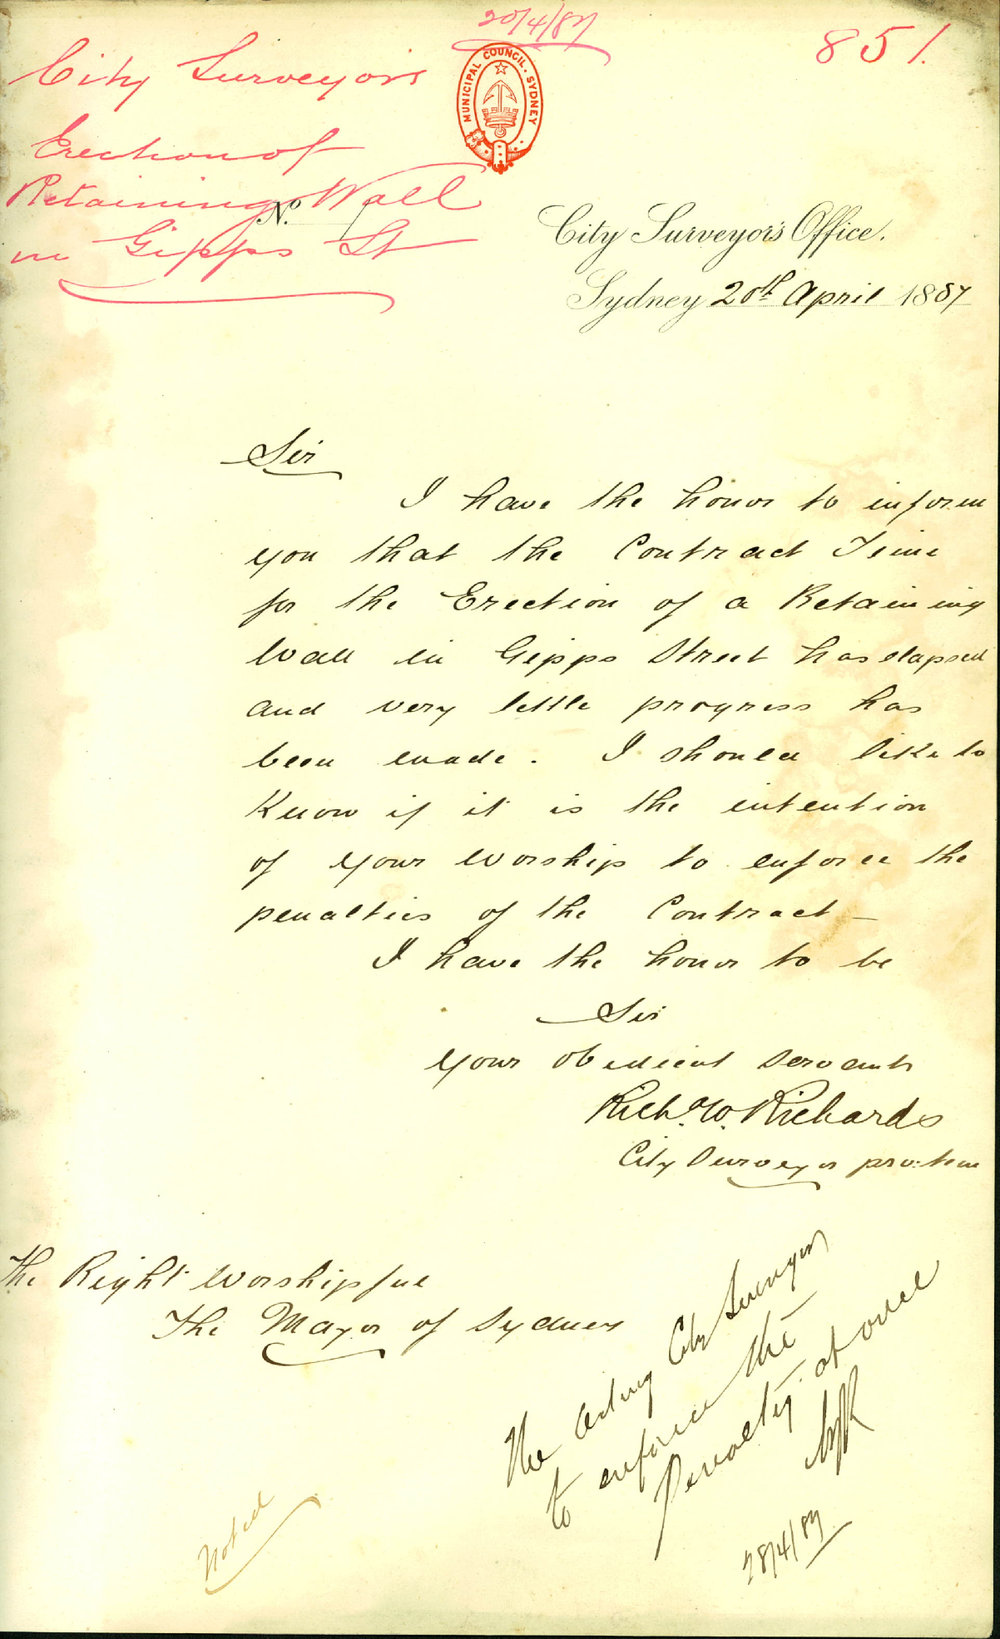 20/4/87
851.
City Surveyors
Erection of
Retaining Wall
in Gipps St
MUNICIPAL COUNCIL. SYDNEY
No.
City Surveyor's Office.
Sydney 20th April 1887
Sir
I have the honor to inform
you that the Contract Time
for the Erection of a Retaining
Wall in Gipps Street has elapsed
and very little progress has
been made. I should like to
Know if it is the intention
of your Worship to enforce the
penalties of the Contract—
I have the honor to be
Sir
Your obedient Servant
Richd. W. Richards
City Surveyor pro: tem
The Right Worshipful
The Mayor of Sydney
The Acting City Surveyor
to enforce the
Penalty at once
28/4/87
Noted